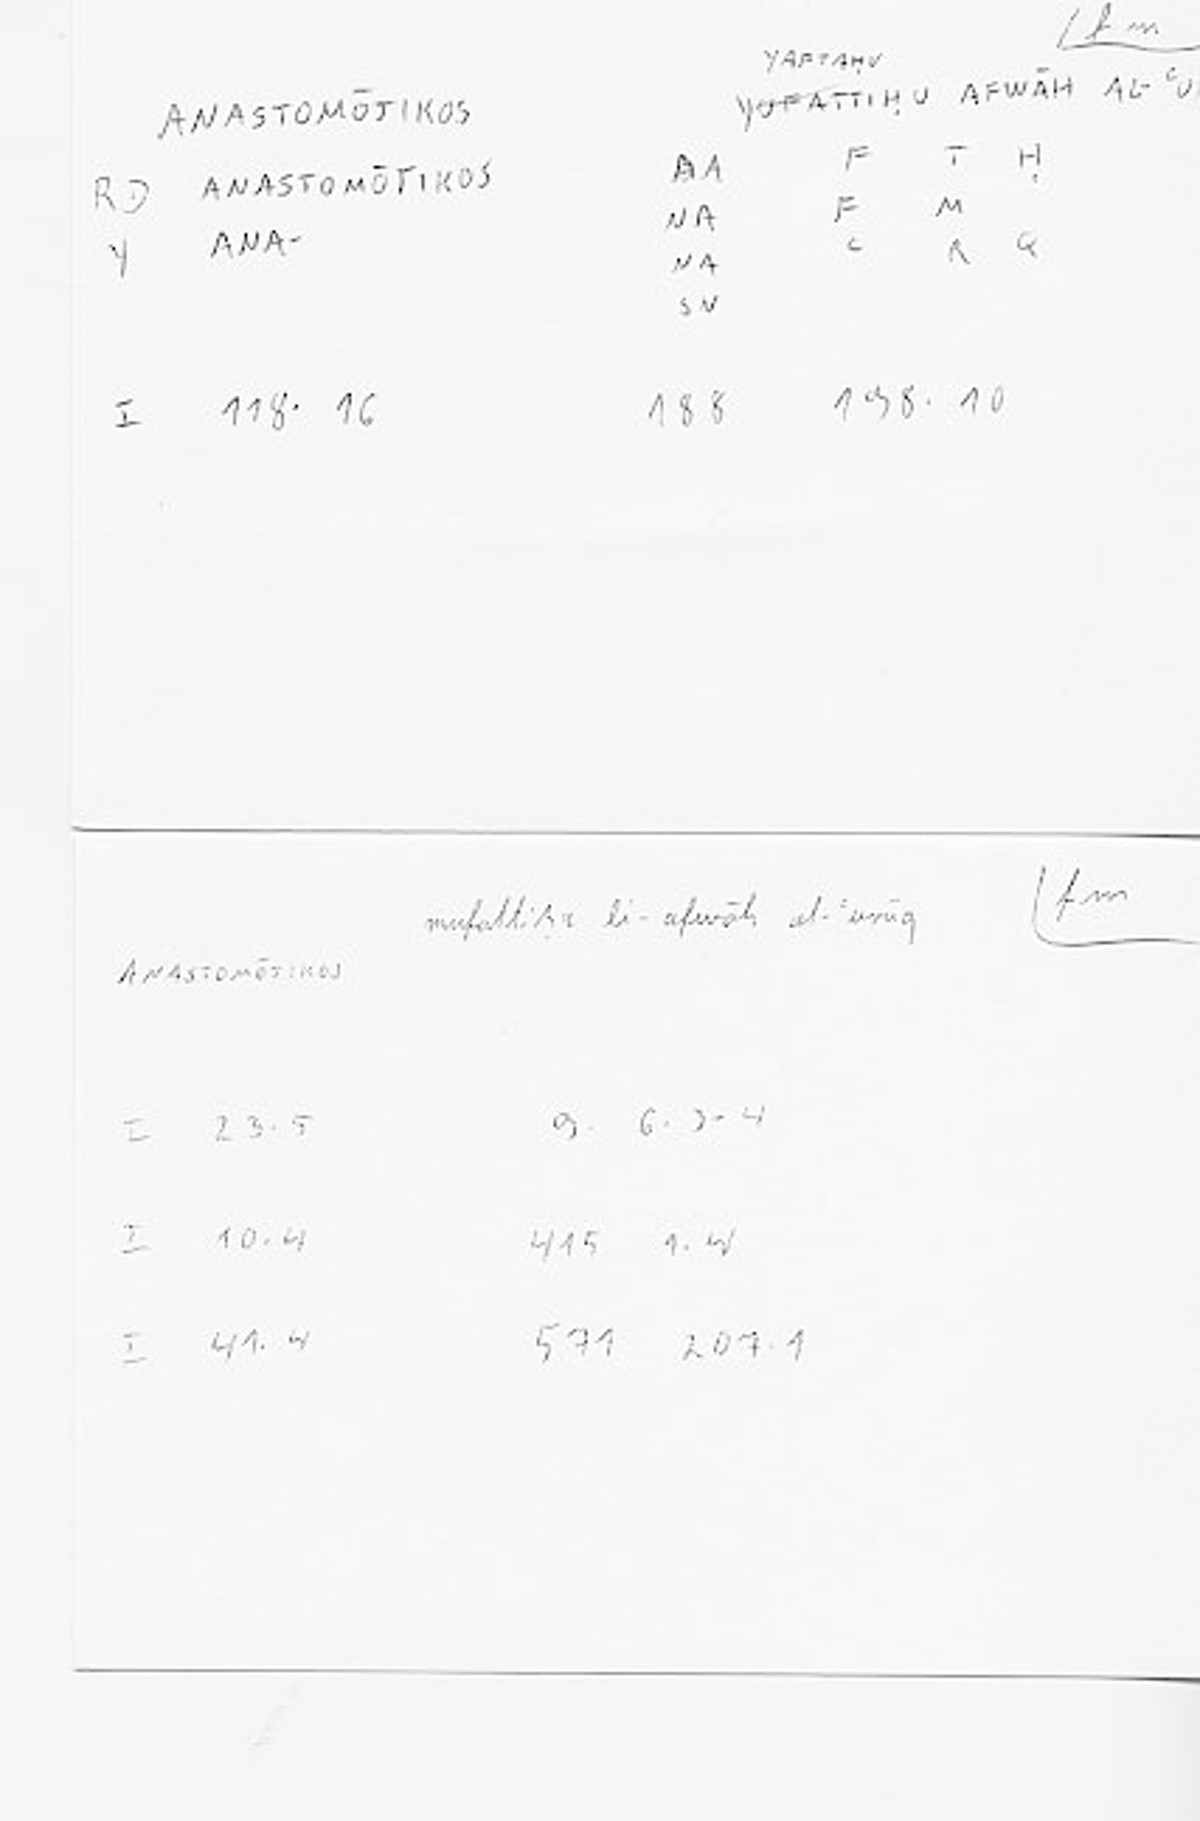 fm
YAFTAḤU
ANASTOMŌTIKOS YUFATTIḤU AFWĀH AL-ʿU
RD ANASTOMŌTIKOS AA F T Ḥ
Y ANA- NA F M
NA ʿ R Q
SN
I 118. 16 188 198. 10
fm
mufattiḥa li-afwāh al-ʿurūq
ANASTOMŌTIKOS
I 23.5 9. 6.3-4
I 10.4 415 1.4
I 41.4 571 207.1